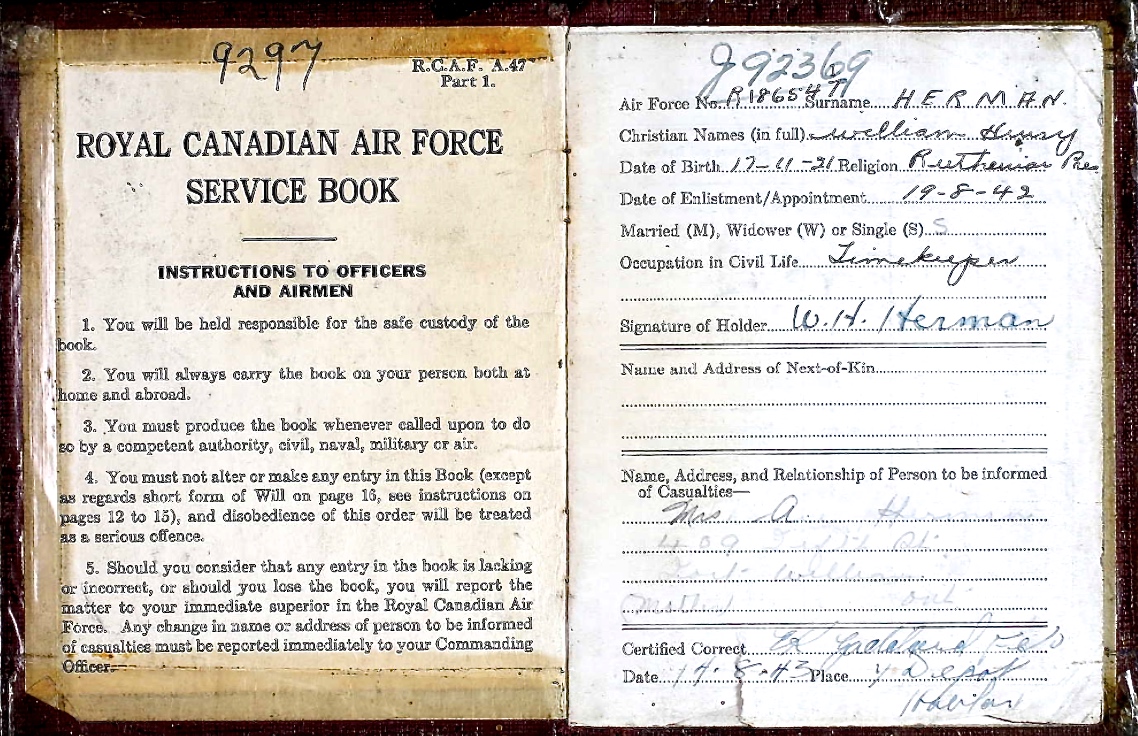 9297
R.C.A.F. A.47
Part 1.
ROYAL CANADIAN AIR FORCE
SERVICE BOOK
INSTRUCTIONS TO OFFICERS
AND AIRMEN
1. You will be held responsible for the safe custody of the
book.
2. You will always carry the book on your person both at
home and abroad.
3. You must produce the book whenever called upon to do
so by a competent authority, civil, naval, military or air.
4. You must not alter or make any entry in this Book (except
as regards short form of Will on page 16, see instructions on
pages 12 to 15), and disobedience of this order will be treated
as a serious offence.
5. Should you consider that any entry in the book is lacking
or incorrect, or should you lose the book, you will report the
matter to your immediate superior in the Royal Canadian Air
Force. Any change in name or address of person to be informed
of casualties must be reported immediately to your Commanding
Officer.
J92369
Air Force No. R186547 Surname HERMAN.
Christian Names (in full) William Henry
Date of Birth 17-11-21 Religion Ruthenian
Date of Enlistment/Appointment 19-8-42
Married (M), Widower (W) or Single (S) S
Occupation in Civil Life Timekeeper
Signature of Holder W.H. Herman
Name and Address of Next-of-Kin
Name, Address, and Relationship of Person to be informed
of Casualties—
Mrs A Herman
409 St.
Fort William
Mother Ont
Certified Correct
Date 14-8-43 Place Y Depot
Halifax